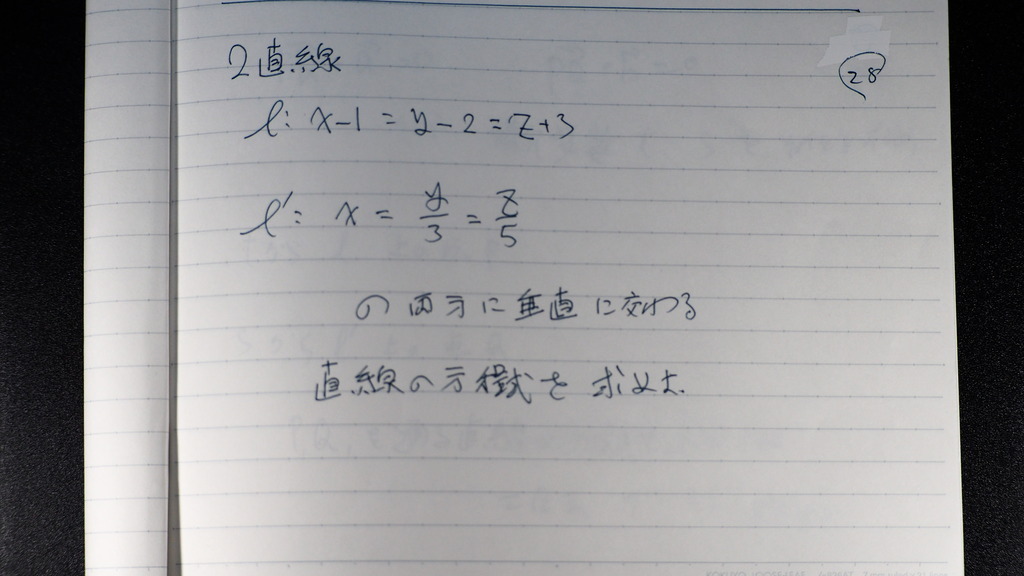 28
2直線
l: x-1=y-2=z+3
l': x = y/3 = z/5
の両方に垂直に交わる
直線の方程式を求めよ.